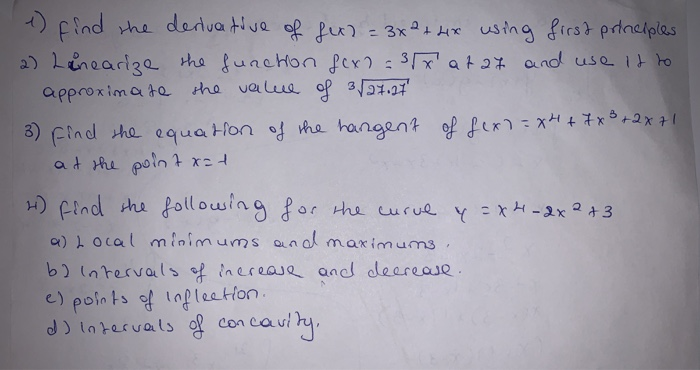 1) Find the derivative of f(x) = 3x² + 4x using first principles
2) Linearize the function f(x) = ³√x at 27 and use it to
approximate the value of ³√27.27
3) Find the equation of the tangent of f(x) = x⁴ + 7x³ + 2x + 1
at the point x = -1
4) Find the following for the curve y = x⁴ - 2x² + 3
a) Local minimums and maximums.
b) Intervals of increase and decrease.
c) points of inflection.
d) Intervals of concavity.